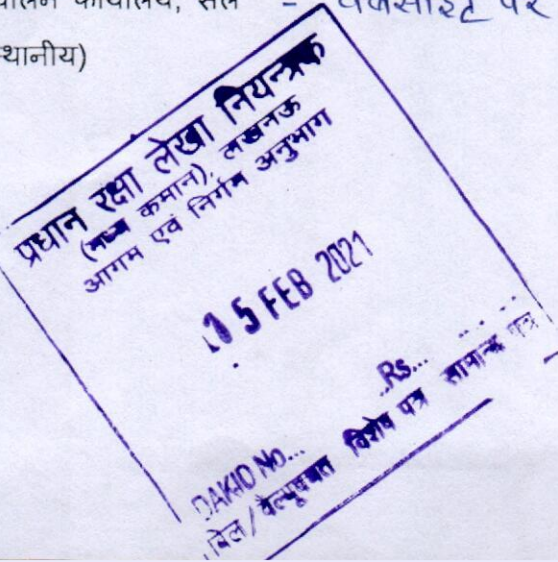 कार्यालय, सेल - वेबसाइट पर
स्थानीय)
प्रधान रक्षा लेखा नियन्त्रक
(मध्य कमान), लखनऊ
आगम एवं निर्गम अनुभाग
05 FEB 2021
Rs...
DAK ID No...
बिल/वैल्यूएबल विशेष पत्र सामान्य पत्र